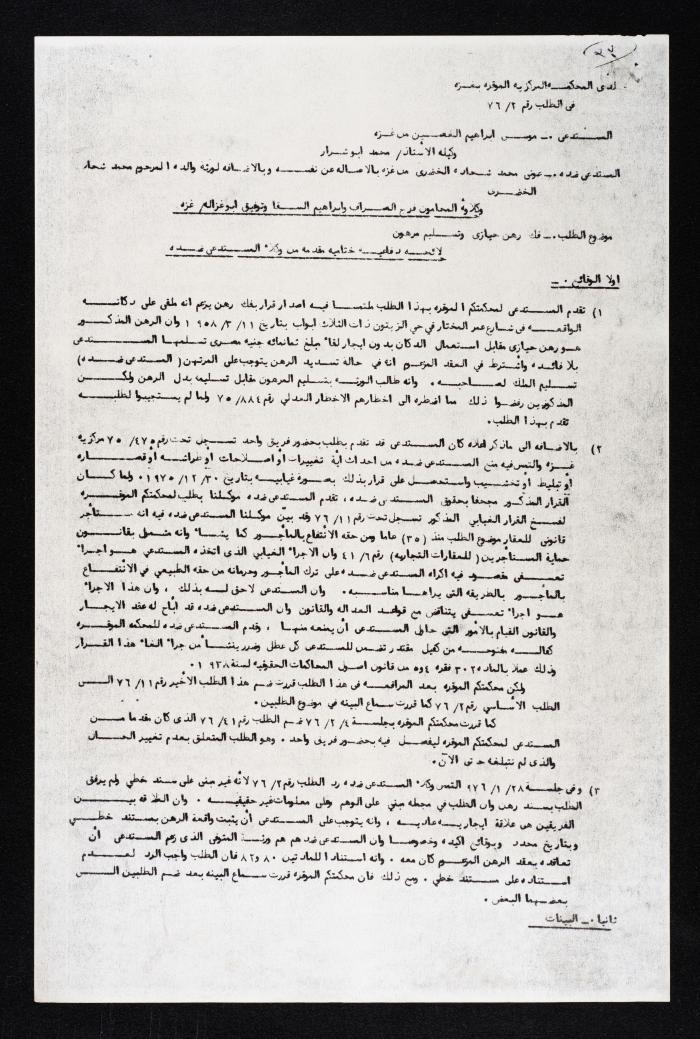 (٣٢)
لدى المحكمة المركزية الموقرة بغزه
فى الطلب رقم ٧٦/٢
المستدعى ٠ــ موسى ابراهيم الغصين من غزه
وكيله الأستاذ/ محمد ابو شرار
المستدعى ضده ٠ــ عونى محمد شحاده الخضرى من غزه بالاصاله عن نفسه وبالاضافه لورثة والده المرحوم محمد شحاد
الخضرى
وكلاؤه المحامون فرج الصراف وابراهيم السقا وتوفيق ابو غزاله غزه
موضوع الطلب ٠ــ فك رهن حيازى وتسليم مرهون
لائحه دفاعيه ختاميه مقدمه من وكلاء المستدعى ضده
اولا الوقائع ٠ــ
١) تقدم المستدعى لمحكمتكم الموقره بهذا الطلب ملتمسا فيه اصدار قرار بفك رهن يزعم انه ملقى على دكانه
الواقعه فى شارع عمر المختار في حي الزيتون ذات الثلاث ابواب بتاريخ ١١/ ٣/ ١٩٥٨ وان الرهن المذكور
هو رهن حيازى مقابل استعمال الدكان بدون ايجار لقاء مبلغ ثمانمائه جنيه مصرى تسلمها المستدعى
بلا فائده واشترط في العقد المزعوم انه في حالة تسديد الرهن يتوجب على المرتهن (المستدعى ضده)
تسليم الملك لصاحبه ٠ وانه طالب الورثه بتسليم المرهون مقابل تسليمه بدل الرهن ولكن
المذكورين رفضوا ذلك مما اضطره الى اخطارهم الاخطار العدلي رقم ٧٥/٨٨٤ ولما لم يستجيبوا لطلبه
تقدم بهذا الطلب.
٢) بالاضافه الى ماذكر اعلاه كان المستدعى قد تقدم بطلب بحضور فريق واحد تسجل تحت رقم ٤٧٥/ ٧٥ مركزية
غزه والتمس فيه منع المستدعى ضده من احداث أية تغييرات أو اصلاحات أو طراشه أو قصاره
أو تبليط أو تخشيب واستحصل على قرار بذلك بصوره غيابيه بتاريخ ٣٠/ ١٢/ ١٩٧٥ ٠ ولما كان
القرار المذكور مجحفا بحقوق المستدعى ضده، تقدم المستدعى ضده موكلنا بطلب لمحكمتكم الموقره
لفسخ القرار الغيابي المذكور تسجل تحت رقم ١١/ ٧٦ وقد بيّن موكلنا المستدعى ضده فيه انه مستأجر
قانونى للعقار موضوع الطلب منذ (٣٥) عاما ومن حقه الأنتفاع بالمأجور كما يشاء وانه مشمول بقانون
حماية المستأجرين (للعقارات التجاريه) رقم ٦/ ٤١ وان الاجراء الغيابى الذى اتخذه المستدعي هو اجراء
تعسفى قصد فيه اكراه المستدعى ضده على ترك المأجور وحرمانه من حقه الطبيعي في الانتفاع
بالمأجور بالطريقه التى يراها مناسبه ٠ وان المستدعى لاحق له بذلك ، وان هذا الاجراء
هو اجراء تعسفى يتناقض مع قواعد العداله والقانون وان المستدعى ضده قد أباح له عقد الايجار
والقانون القيام بالأمور التى حاول المستدعى أن يمنعه منها ، وقدم المستدعى ضده للمحكمه الموقره
كفاله مفتوحه من كفيل مقتدر تضمن للمستدعى كل عطل وضرر ينشأ من جراء الغاء هذا القرار
وذلك عملا بالماده ٣٠٢ فقره ٤ و٥ من قانون اصول المحاكمات الحقوقيه لسنة ١٩٣٨ ٠
ولكن محكمتكم الموقره بعد المرافعه فى هذا الطلب قررت ضم هذا الطلب الأخير رقم ١١/ ٧٦ الى
الطلب الأساسي رقم ٢/ ٧٦ كما قررت سماع البينه في موضوع الطلبين.
كما قررت محكمتكم الموقره بجلسة ٤/ ٢/ ٧٦ ضم الطلب رقم ٤١/ ٧٦ الذى كان مقدما من
المستدعى لمحكمتكم الموقره ليفصل فيه بحضور فريق واحد ٠ وهو الطلب المتعلق بعدم تغيير الحال
والذى لم نتبلغه حتى الآن.
٣) وفى جلسة ٢٨/ ١/ ٩٧٦ التمس وكلاء المستدعى ضده رد الطلب رقم ٢/ ٧٦ لأنه غير مبنى على سند خطي ولم يرفق
الطلب بسند رهن وان الطلب في مجمله مبني على الوهم وعلى معلومات غير حقيقيه ٠ وان العلاقه بين
الفريقين هى علاقة ايجاريه عاديه ، وانه يتوجب على المستدعى أن يثبت واقعة الرهن بمستند خطى
وبتاريخ محدد وبوقائع اكيده وخصوصا وان المستدعى ضدهم هم ورثة المتوفى الذى زعم المستدعى أن
تعاقده بعقد الرهن المزعوم كان معه ٠ وانه استنادا للمادتين ٨٠ و ٨٢ فان الطلب واجب الرد لعدم
استناده على مستند خطي ٠ ومع ذلك فان محكمتكم الموقره قررت سماع البينه بعد ضم الطلبين الى
بعضهما البعض ٠
ثانيا ٠ــ البينات